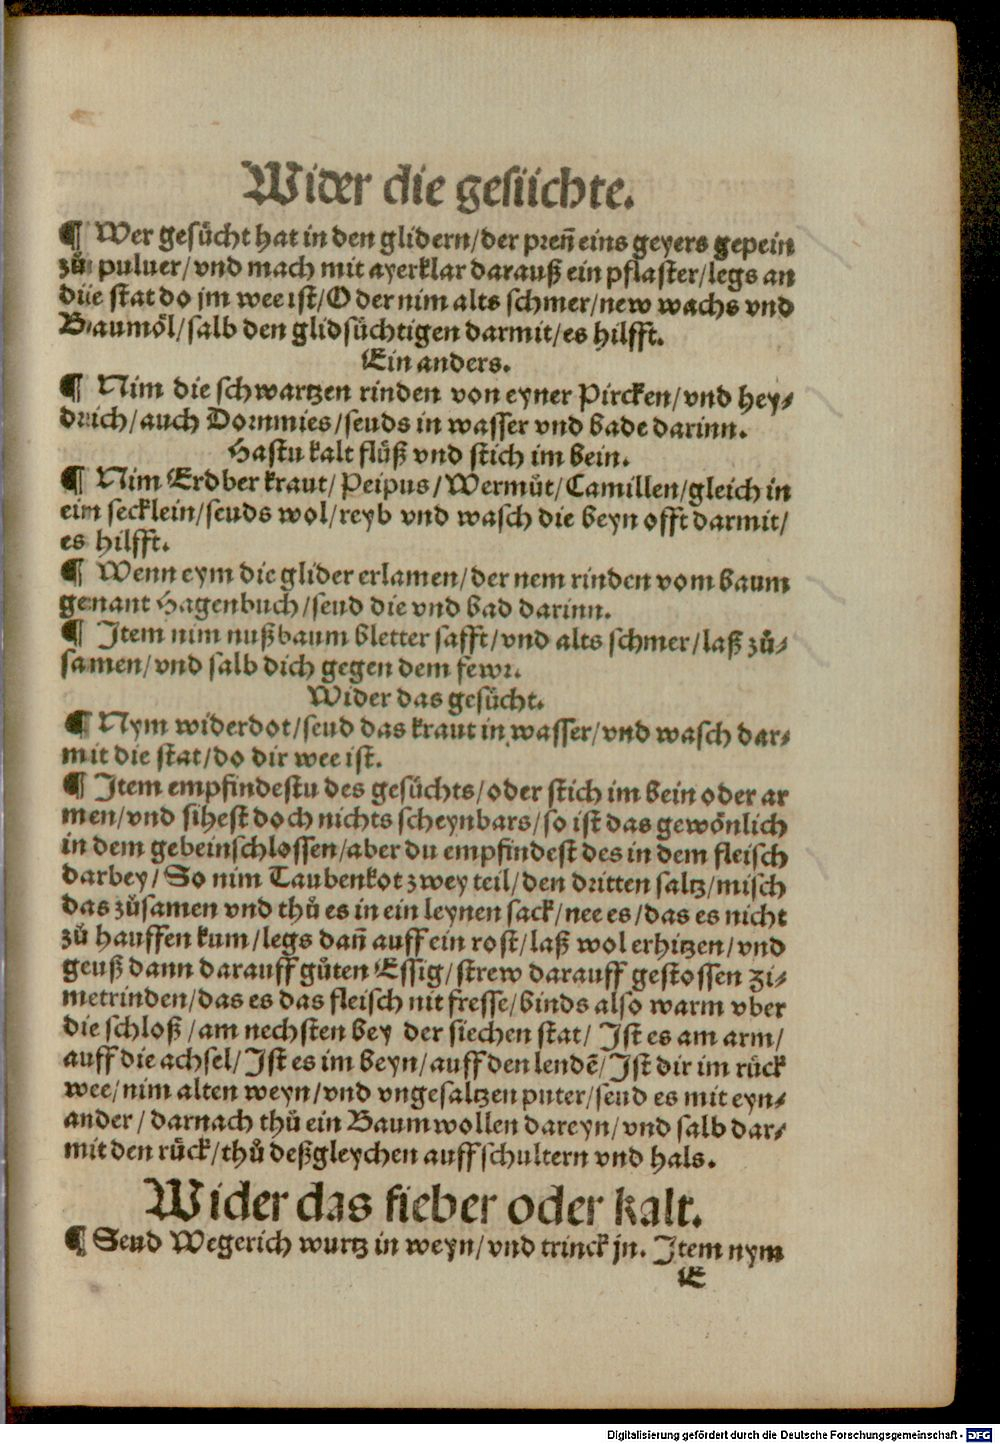 Wider die gesüchte.
¶ Wer gesücht hat in den glidern/der pren̄ eins geyers gepein
zů puluer/vnd mach mit ayerklar darauß ein pflaster/legs an
die stat do jm wee ist/Oder nim alts schmer/new wachs vnd
Baumöl/salb den glidsüchtigen darmit/es hilfft.
Ein anders.
¶ Nim die schwartzen rinden von eyner Pircken/vnd hey⸗
drich/auch Dornmies/seuds in wasser vnd bade darinn.
Hastu kalt flüß vnd stich im bein.
¶ Nim Erdber kraut/Peipus/Wermůt/Camillen/gleich in
ein secklein/seuds wol/reyb vnd wasch die beyn offt darmit/
es hilfft.
¶ Wenn eym die glider erlamen/der nem rinden vom baum
genant Hagenbuch/seud die vnd bad darinn.
¶ Item nim nußbaum bletter safft/vnd alts schmer/laß zů⸗
samen/vnd salb dich gegen dem fewr.
Wider das gesücht.
¶ Nym widerdot/seud das kraut in wasser/vnd wasch dar⸗
mit die stat/do dir wee ist.
¶ Item empfindestu des gesüchts/oder stich im bein oder ar
men/vnd sihest doch nichts scheynbars/so ist das gewönlich
in dem gebeinschlossen/aber du empfindest des in dem fleisch
darbey/So nim Taubenkot zwey teil/den dritten saltz/misch
das zůsamen vnd thů es in ein leynen sack/nee es/das es nicht
zů hauffen kum/legs dan̄ auff ein rost/laß wol erhitzen/vnd
geuß dann darauff gůten Essig/strew darauff gestossen zi⸗
metrinden/das es das fleisch nit fresse/binds also warm vber
die schloß/am nechsten bey der siechen stat/Ist es am arm/
auff die achsel/Ist es im beyn/auff den lendē/Ist dir im rück
wee/nim alten weyn/vnd vngesaltzen puter/seud es mit eyn⸗
ander/darnach thů ein Baumwollen dareyn/vnd salb dar⸗
mit den rück/thů deßgleychen auff schultern vnd hals.
Wider das fieber oder kalt.
¶ Seud Wegerich wurtz in weyn/vnd trinck jn. Item nym
E
Digitalisierung gefördert durch die Deutsche Forschungsgemeinschaft - DFG